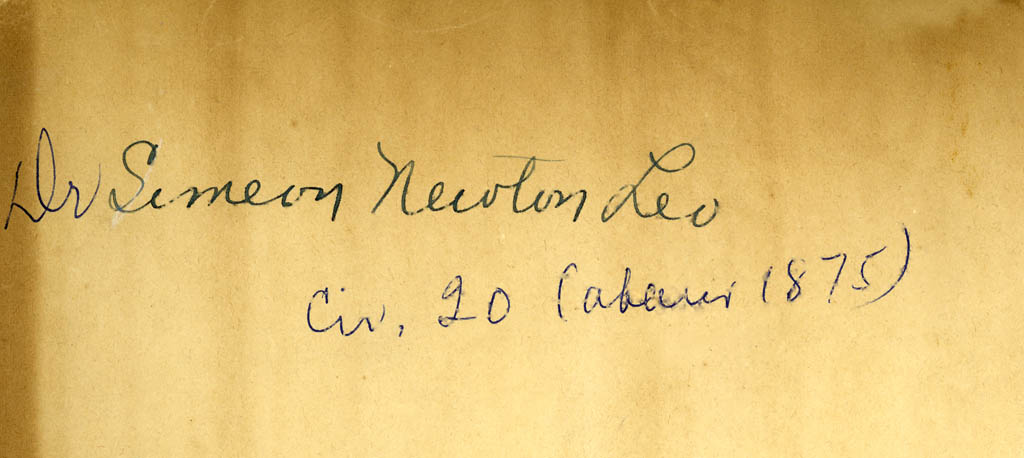 Dr Simeon Newton Leo
Cir. 20 ( 1875)